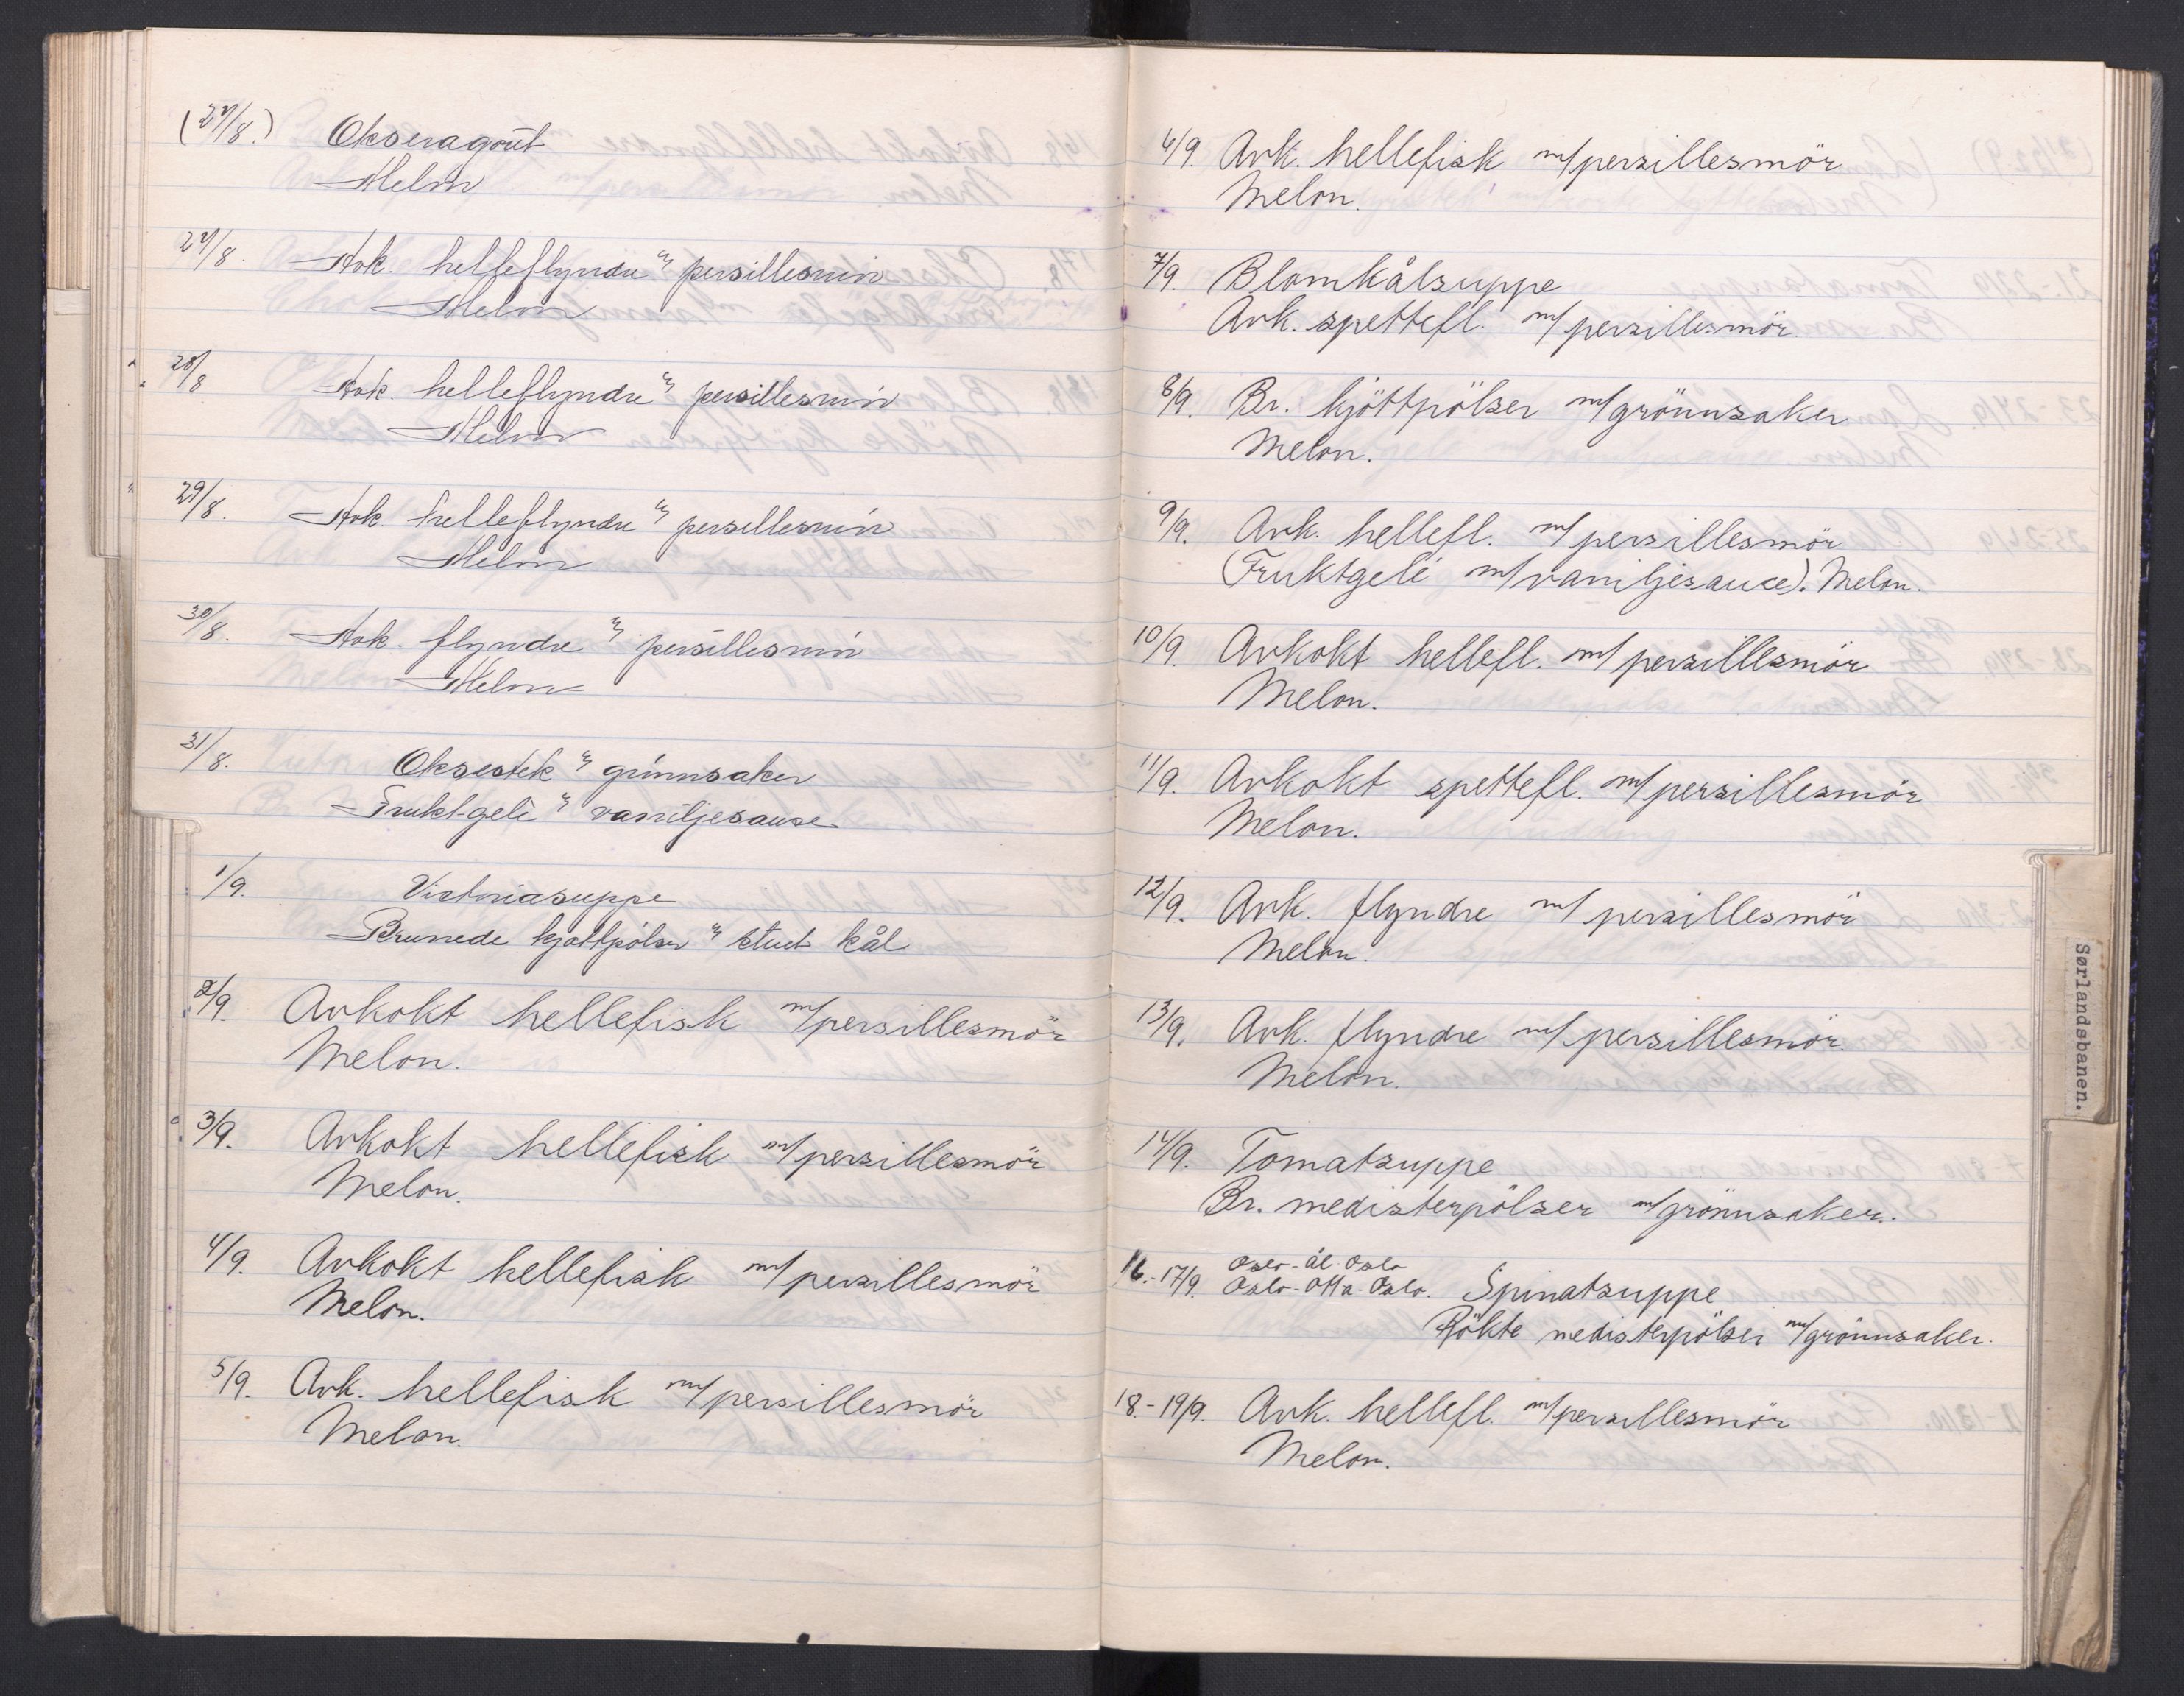 (27/8.) Okseragout
Melon
27/8. Avk. helleflyndre m/ persillesmör
Melon
28/8 Avk. helleflyndre m/ persillesmör
Melon
29/8. Avk. helleflyndre m/ persillesmör
Melon
30/8. Avk. flyndre m/ persillesmör
Melon
31/8. Oksestek m/ grönnsaker
Frukt-gelè m/ vaniljesause
1/9. Victoriasuppe
Brunede kjøttpölser m/ stuet kål
2/9. Avkokt hellefisk m/persillesmör
Melon.
3/9. Avkokt hellefisk m/persillesmör
Melon.
4/9. Avkokt hellefisk m/persillesmör
Melon.
5/9. Avk. hellefisk m/persillesmör
Melon.
6/9. Avk. hellefisk m/persillesmör
Melon.
7/9. Blomkålsuppe
Avk. spettefl. m/persillesmör.
8/9. Br. kjöttpölser m/grönnsaker
Melon.
9/9. Avk. hellefl. m/persillesmör
(Fruktgelé m/vaniljesauce). Melon.
10/9. Avkokt hellefl. m/persillesmör
Melon.
11/9. Avkokt spettefl. m/persillesmör
Melon.
12/9. Avk. flyndre m/persillesmör
Melon.
13/9. Avk. flyndre m/persillesmör.
Melon.
14/9. Tomatsuppe
Br. medisterpölser m/grönnsaker.
Oslo-Ål-Oslo
16.-17/9. Oslo-Otta-Oslo. Spinatsuppe
Rökte medisterpölser m/grönnsaker.
18.-19/9. Avk. hellefl. m/persillesmör
Melon.
Sørlandsbanen.